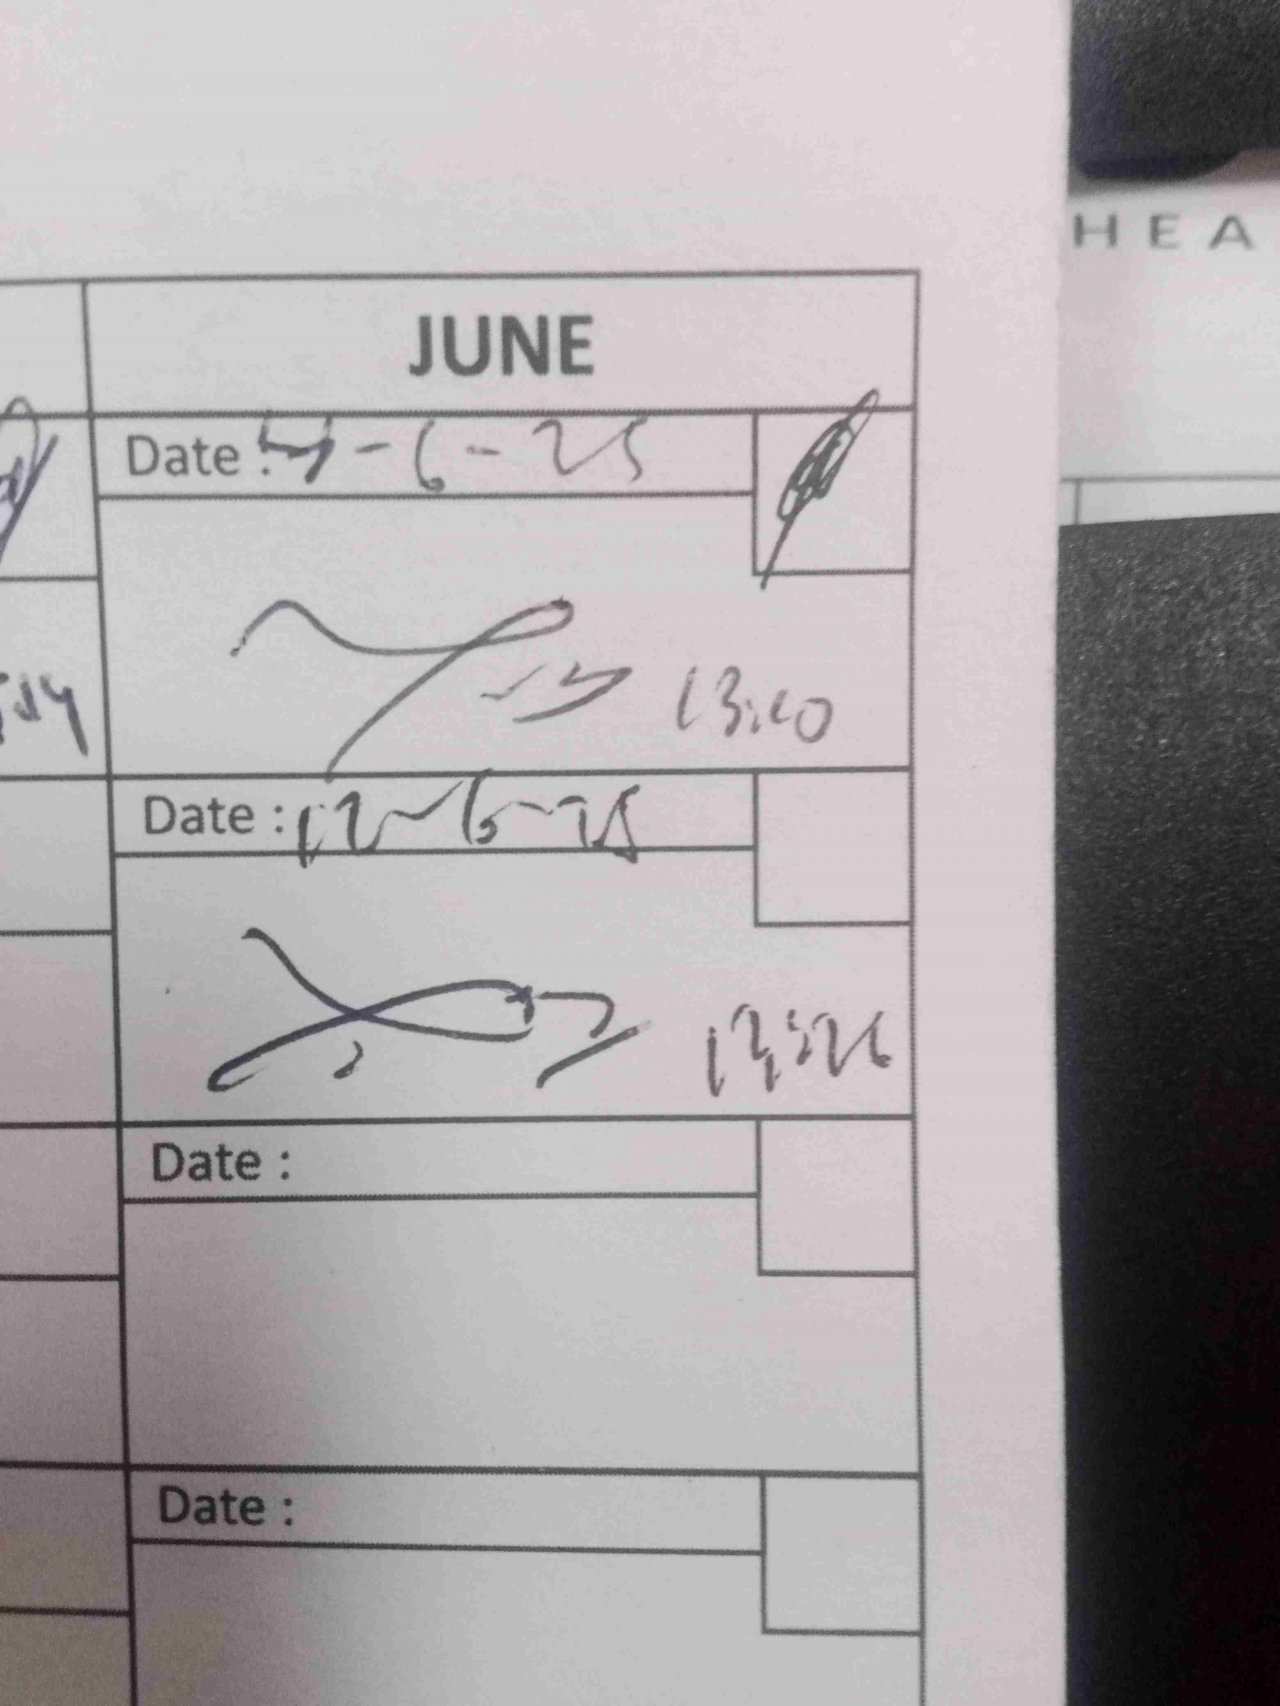 HEA
JUNE
Date : 4-6-25
13:10
Date : 12-6-25
13:26
Date :
Date :